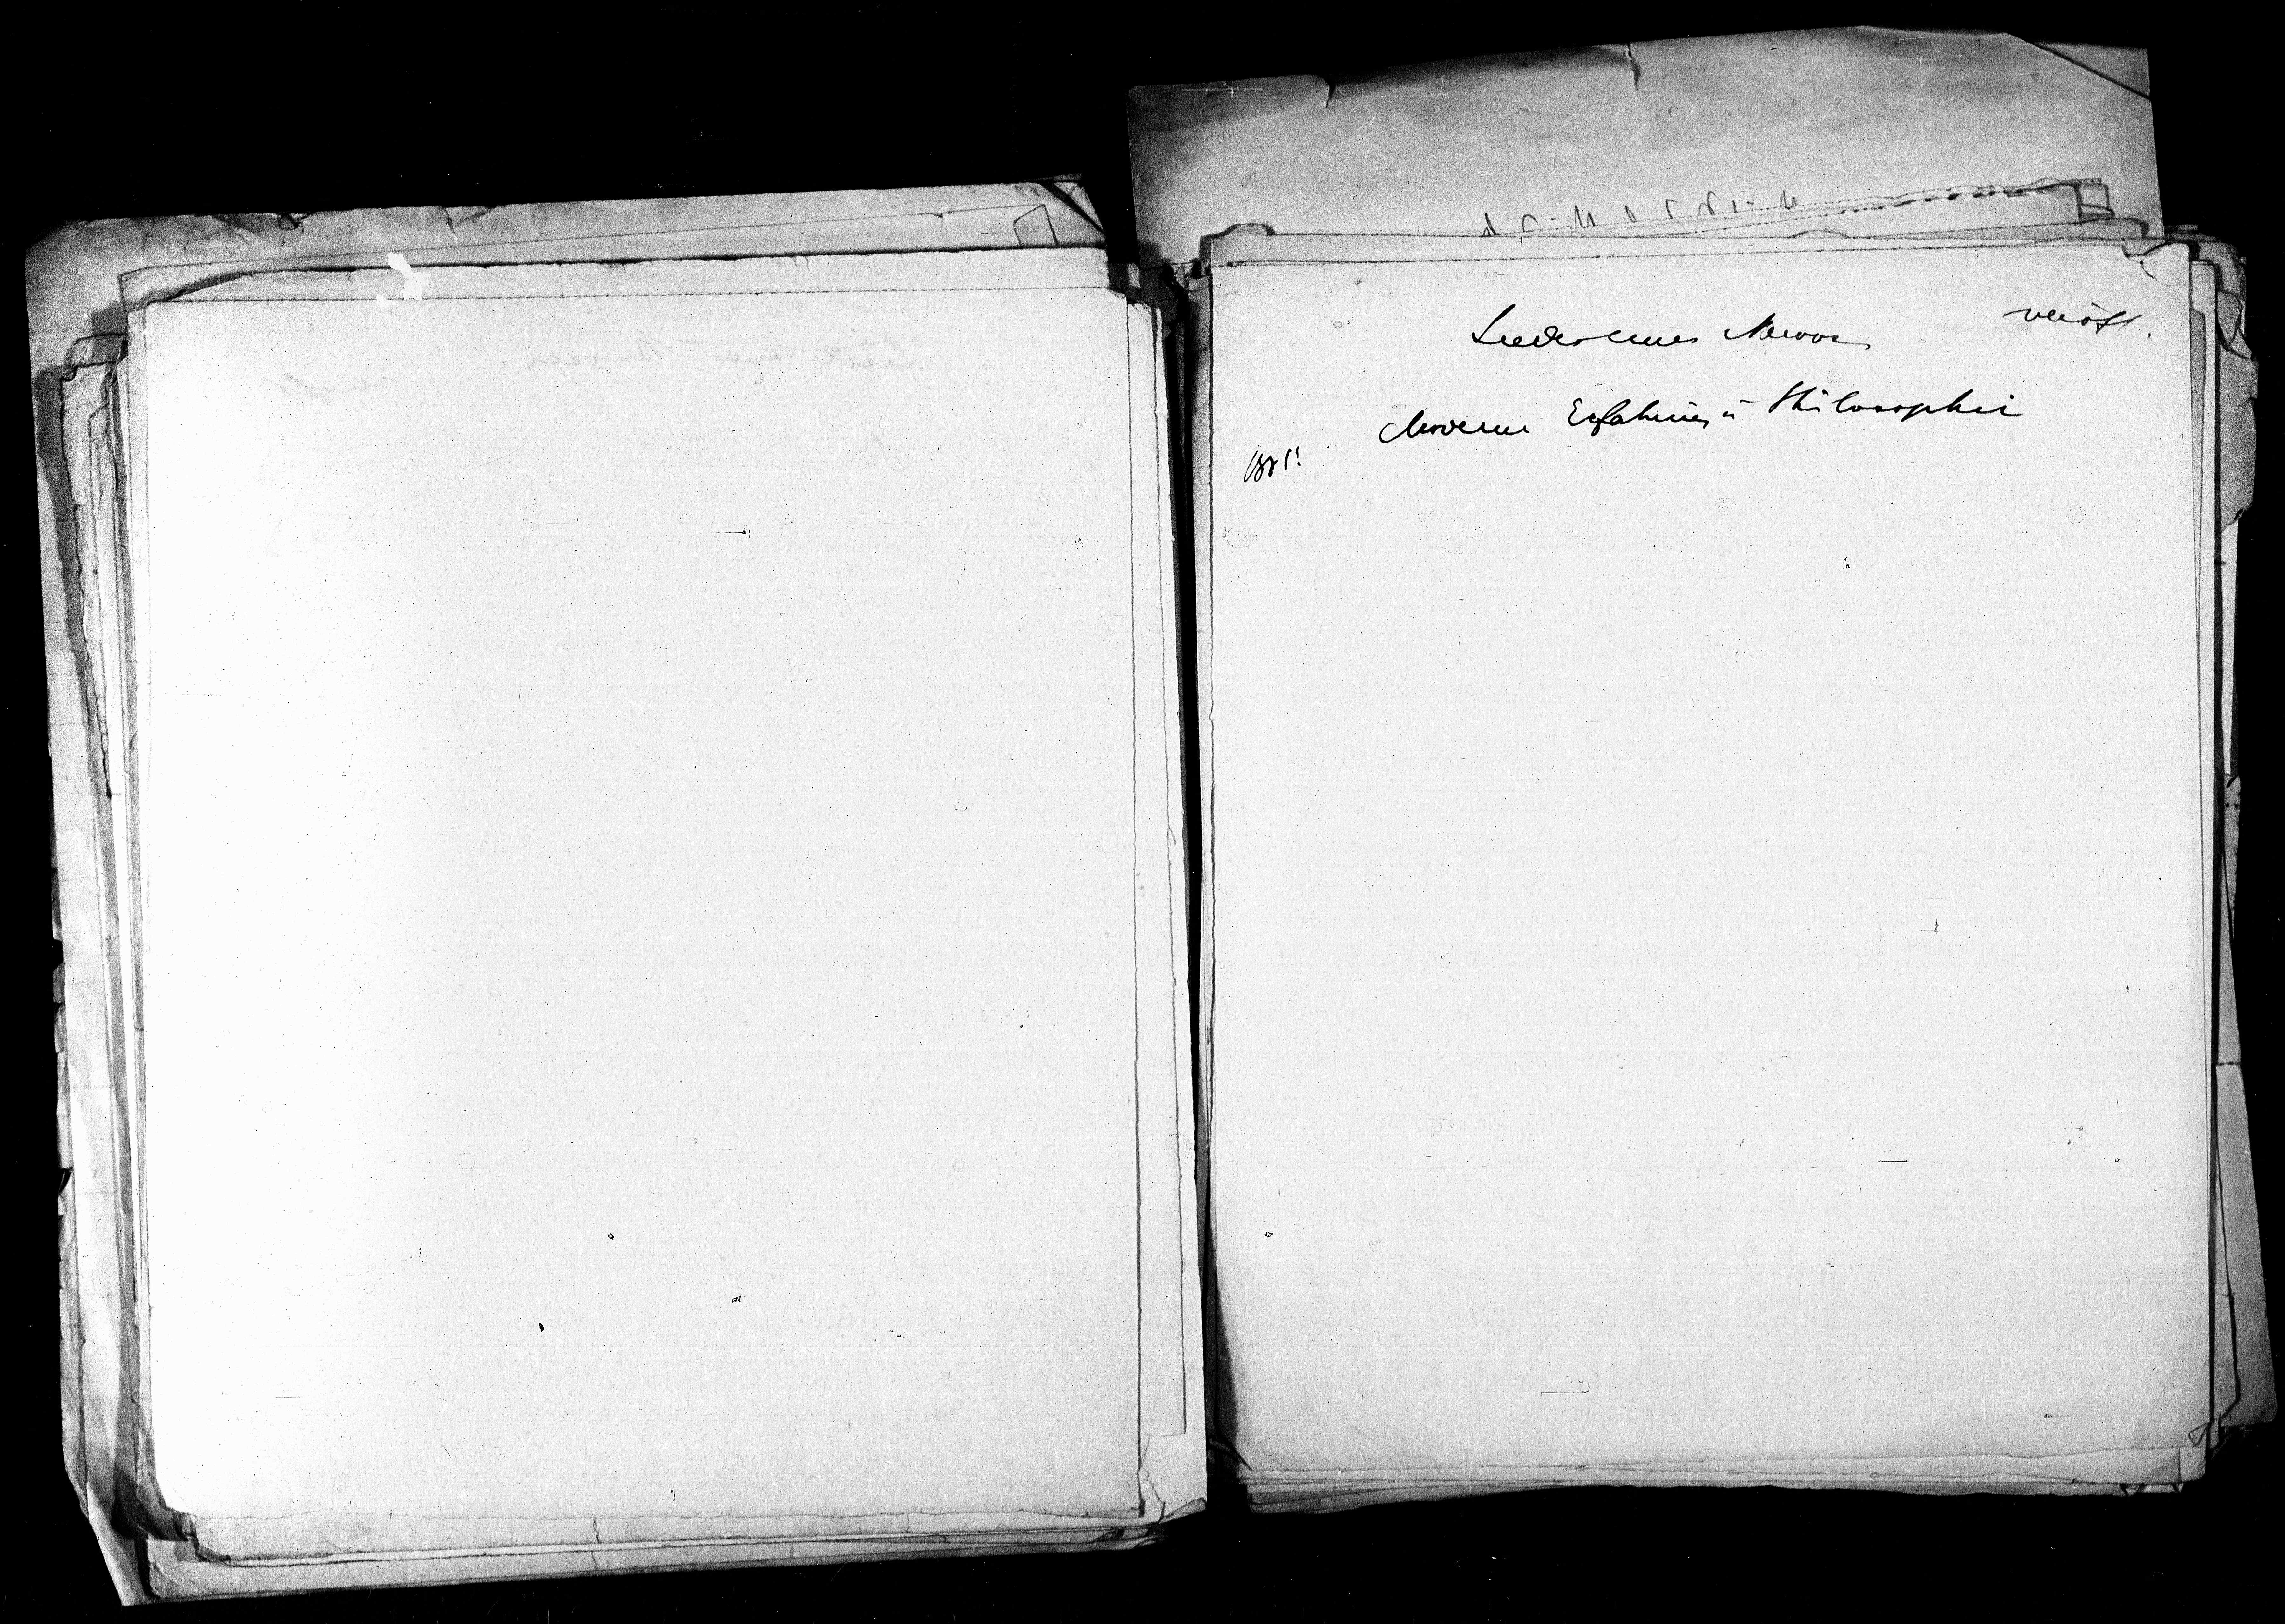 Lieder eines
veröff.
Moderne Erfahrung u Philosophie
1881!